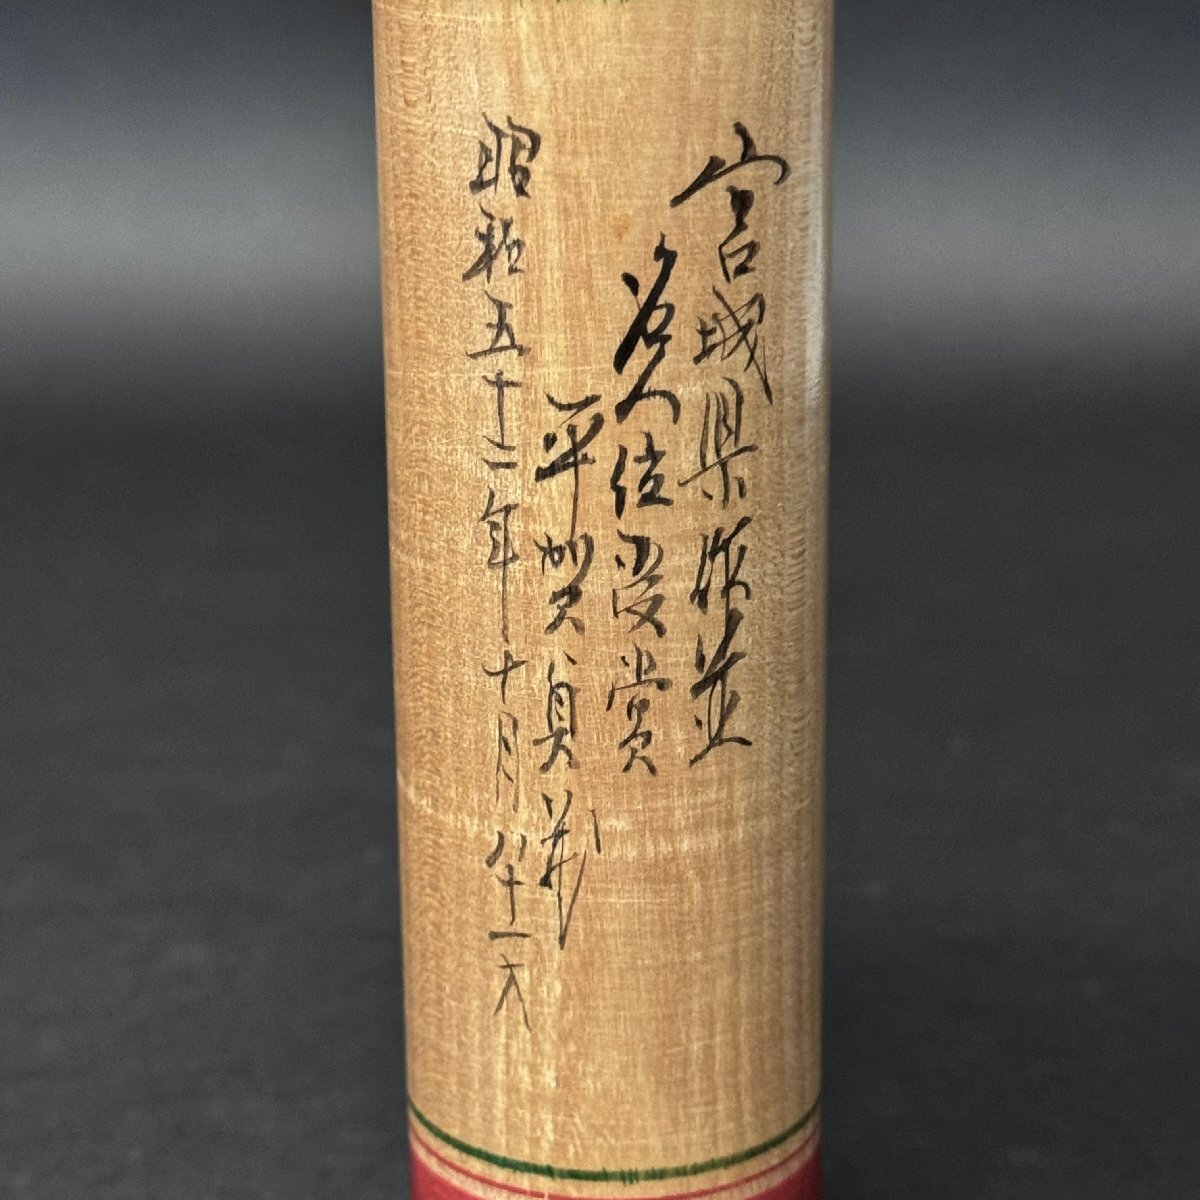 宮城県作並
名人位受賞
平賀貞蔵
昭和五十二年十月八十一才